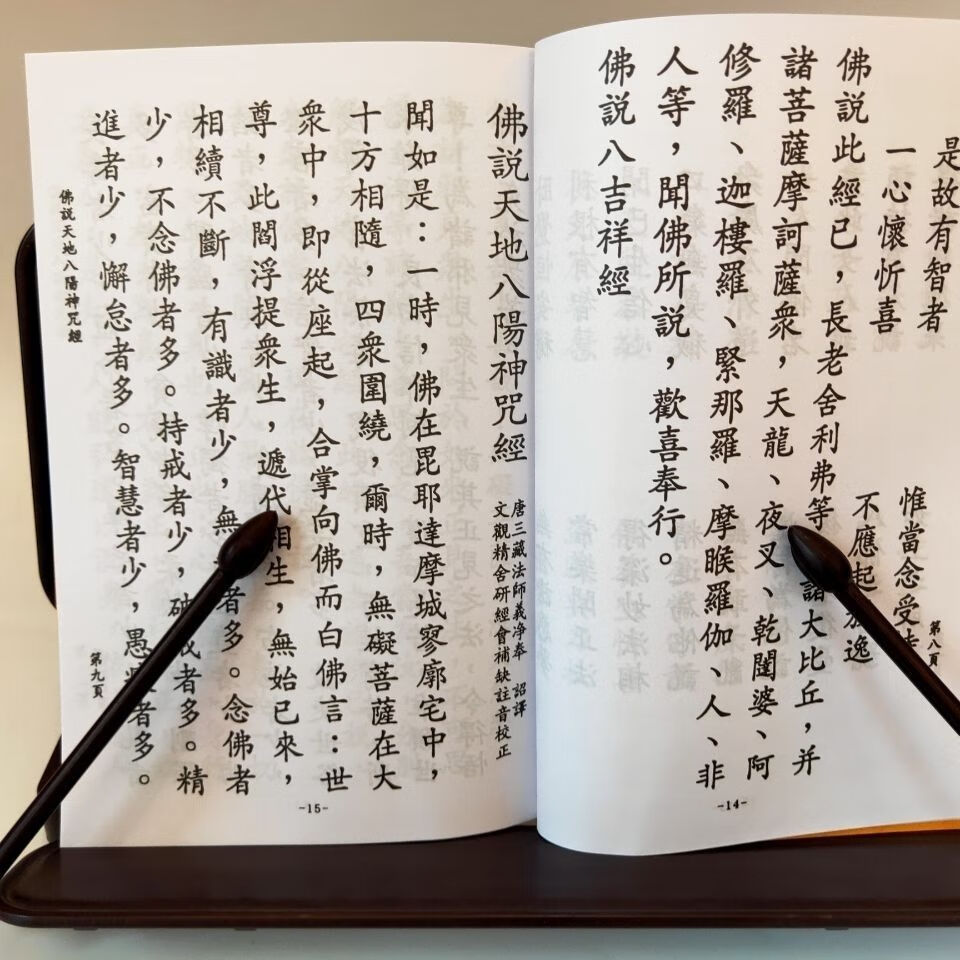 是故有智者
惟當念受
一心懷忻喜
不應起 逸
佛說此經已，長老舍利弗等 諸大比丘，并
諸菩薩摩訶薩衆，天龍、夜叉、乾闥婆、阿
修羅、迦樓羅、緊那羅、摩睺羅伽、人、非
人等，聞佛所說，歡喜奉行。
佛說八吉祥經
第八頁
-14-
佛說天地八陽神咒經
唐三藏法師義净奉　詔譯
文觀精舍研經會補缺註音校正
聞如是：一時，佛在毘耶達摩城寥廓宅中，
十方相隨，四衆圍繞，爾時，無礙菩薩在大
衆中，即從座起，合掌向佛而白佛言：世
尊，此閻浮提衆生，遞代相生，無始已來，
相續不斷，有識者少，無 者多。念佛者
少，不念佛者多。持戒者少，破戒者多。精
進者少，懈怠者多。智慧者少，愚 者多。
佛說天地八陽神咒經
第九頁
-15-